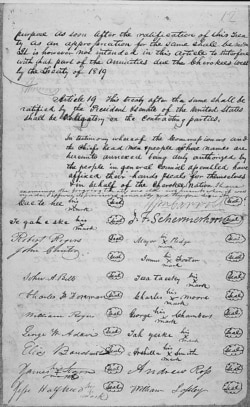 purpose as soon after the ratification of this Trea
ty as an appropriation for the same shall be made
It is however not intended in this Article to interfere
with that part of the annuities due the Cherokees west
by the Treaty of 1819
Article 19. This treaty after the same shall be
ratified by the President & Senate of the United States
shall be obligatory on the Contracting parties.
In testimony whereof the Commissioners and
the Chiefs head men & people whose names are
hereunto annexed being duly authorized by
the people in general Council assembled have
affixed their hands & seals for themselves
& in behalf of the Cherokee Nation
Cae te hee his mark Seal
J. F. Schermerhorn
Te gah e ske his mark Seal
Robert Rogers Seal Major his Ridge mark Seal
John Gunter Seal James his Foster mark Seal
John A Bell Seal Tesa taesky his mark Seal
Charles F Foreman Seal Charles his Moore mark Seal
William Rogers Seal George his Chambers mark Seal
George W Adair Seal Tah yeske his mark Seal
Elias Boudinot Seal Archilla his Smith mark Seal
James Starr his mark Seal Andrew Ross Seal
Jesse Halfbreed his mark Seal William Lassley Seal